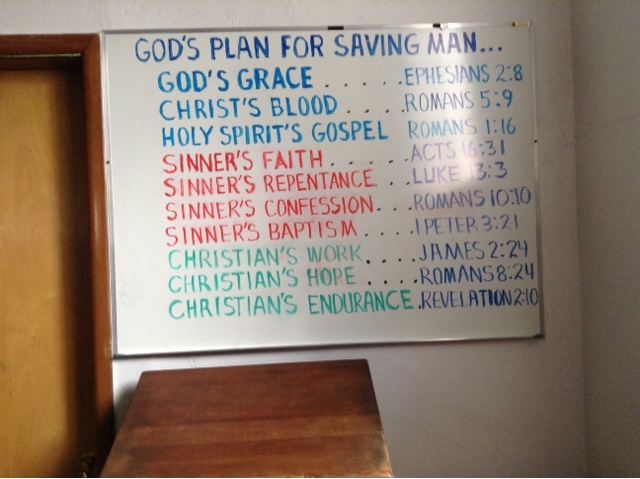 GOD'S PLAN FOR SAVING MAN...
GOD'S GRACE . . . . . EPHESIANS 2:8
CHRIST'S BLOOD . . . . . ROMANS 5:9
HOLY SPIRIT'S GOSPEL ROMANS 1:16
SINNER'S FAITH . . . . . . ACTS 16:31
SINNER'S REPENTANCE. . . . LUKE 13:3
SINNER'S CONFESSION. . . . ROMANS 10:10
SINNER'S BAPTISM . . . . . 1 PETER 3:21
CHRISTIAN'S WORK. . . . . JAMES 2:24
CHRISTIAN'S HOPE . . . . . ROMANS 8:24
CHRISTIAN'S ENDURANCE . REVELATION 2:10